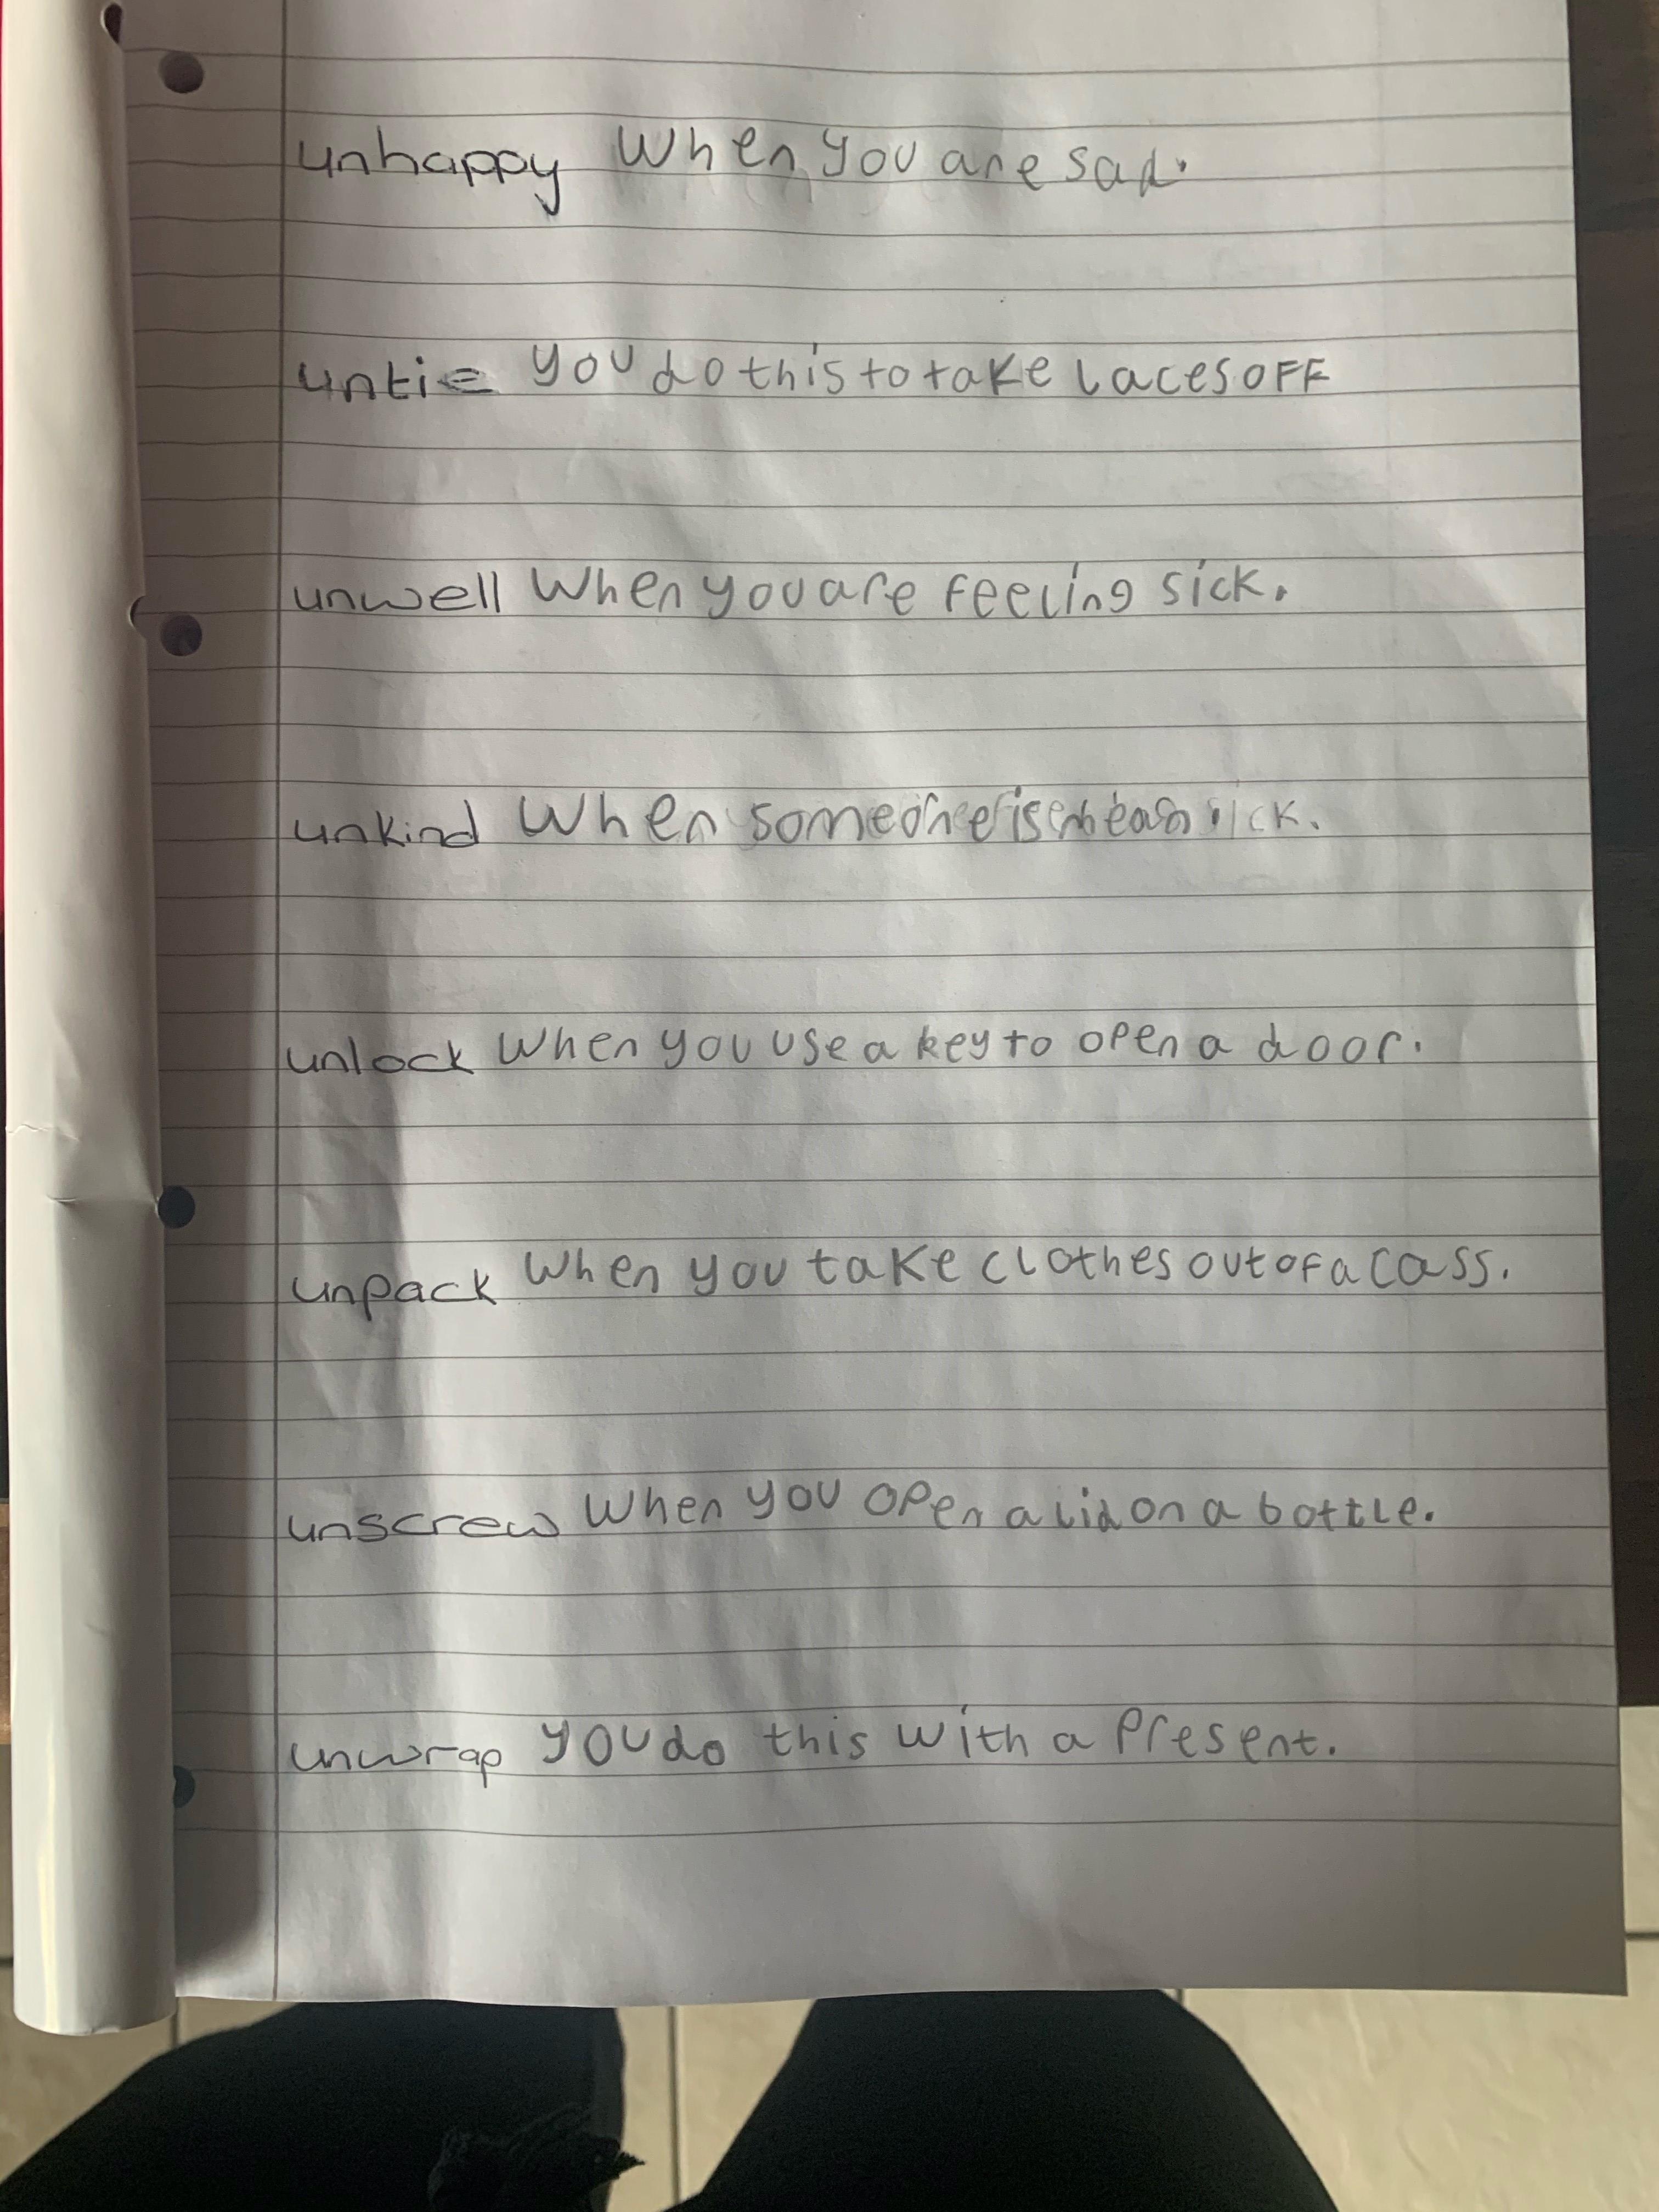 unhappy When you are sad.
untie you do this to take laces off
unwell When you are feeling sick.
unkind When someone is mean sick.
unlock When you use a key to open a door.
unpack When you take clothes out of a cass.
unscrew When you open a lid on a bottle.
unwrap you do this with a Present.